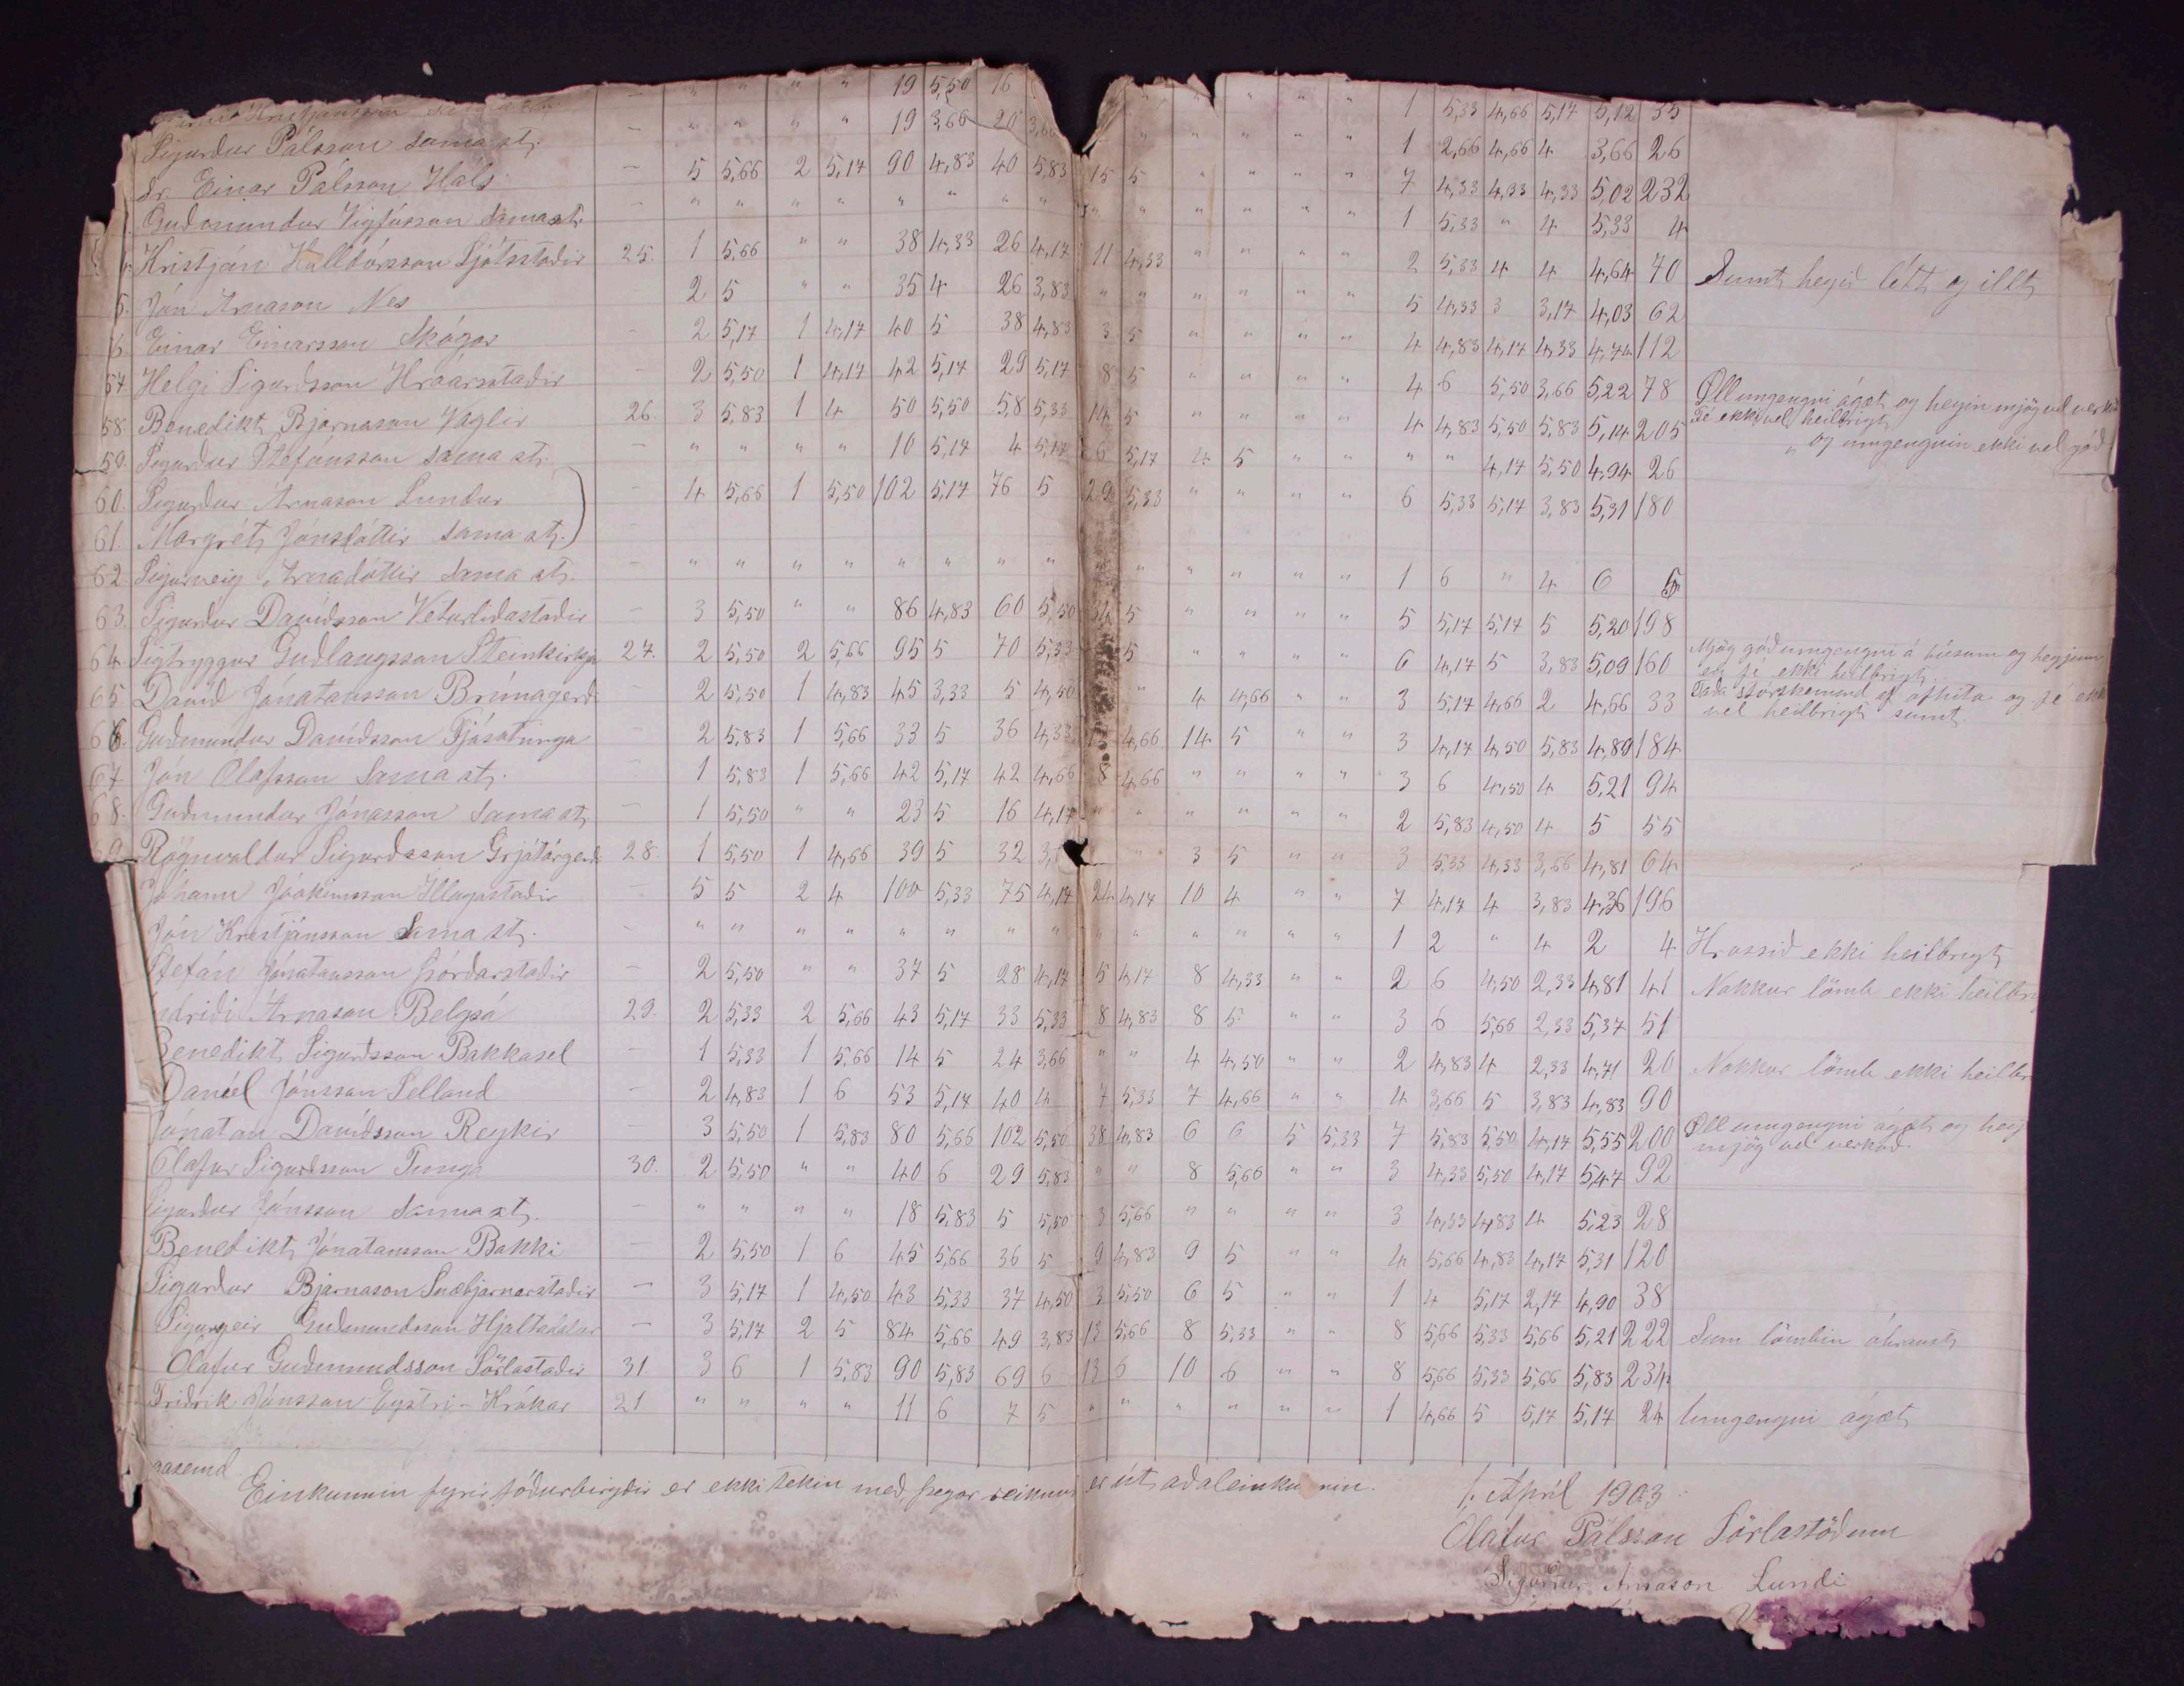 Kristjánsson sama st. — " " " " 19 5,50 16 " " " " " 1 5,33 4,66 5,17 5,12 35
Sigurður Pálsson sama st. — " " " " 19 3,66 20 3,66 " " " " " 1 2,66 4,66 4 3,66 26
Sr. Einar Pálsson Háls — 5 5,66 2 5,17 90 4,83 40 5,83 15 5 " " " " 7 4,33 4,33 4,33 5,02 232
Guðmundur Vigfússon sama st. — " " " " " " " " " " " " " 1 5,33 " 4 5,33 4
Kristján Halldórsson Ljótsstaðir 25. 1 5,66 " " 38 4,33 26 4,17 11 4,33 " " " " 2 5,33 4 4 4,64 70 Sumt heyið létt og illt
5. Jón Árnason Nes 2 5 " " 35 4 26 3,83 " " " " " " 5 4,33 3 3,17 4,03 62
6. Einar Einarsson Skógar — 2 5,17 1 4,17 40 5 38 4,83 3 5 " " " " 4 4,83 4,17 4,33 4,74 112
57. Helgi Sigurðsson Hróarsstaðir — 2 5,50 1 4,17 42 5,17 29 5,17 8 5 " " " " 4 6 5,50 3,66 5,22 78 Öll umgengni ágæt og heyin mjög vel verk
58. Benedikt Bjarnason Vaglir 26. 3 5,83 1 4 50 5,50 58 5,33 14 5 " " " " 4 4,83 5,50 5,83 5,14 205 Fé ekki vel heilbrigt
59. Sigurður Stefánsson sama st. — " " " " 10 5,17 4 5,17 6 5,17 4 5 " " " " 4,17 5,50 4,94 26 " og umgengnin ekki vel góð
60. Sigurður Árnason Lundur ) — 4 5,66 1 5,50 102 5,17 76 5 29 5,33 " " " " 6 5,33 5,17 3,83 5,31 180
61. Margrét Jónsdóttir sama st. ) —
62. Sigurveig Árnadóttir sama st. — " " " " " " " " " " " " " " 1 6 " 4 6 5
63. Sigurður Davíðsson Veturliðastaðir — 3 5,50 " " 86 4,83 60 5,50 34 5 " " " " 5 5,17 5,17 5 5,20 198
64. Sigtryggur Guðlaugsson Steinkirkja 27. 2 5,50 2 5,66 95 5 70 5,33 5 " " " " 6 4,17 5 3,83 5,09 160 Mjög góð umgengni á húsum og heyjum
en fé ekki heilbrigt.
65 Davíð Jónatansson Brúnagerði — 2 5,50 1 4,83 45 3,33 5 4,50 " 4 4,66 " " 3 5,17 4,66 2 4,66 33 Taða stórskemmd af ofhita og fé ekki
vel heilbrigt sumt.
66. Guðmundur Davíðsson Fjósatunga — 2 5,83 1 5,66 33 5 36 4,33 4,66 14 5 " " 3 4,17 4,50 5,83 4,89 184
67 Jón Ólafsson sama st. — 1 5,83 1 5,66 42 5,17 42 4,66 8 4,66 " " " " 3 6 4,50 4 5,21 94
68. Guðmundur Jónasson sama st. — 1 5,50 " " 23 5 16 4,17 " " " " " " 2 5,83 4,50 4 5 55
9. Rögnvaldur Sigurðsson Grjótárgerði 28. 1 5,50 1 4,66 39 5 32 " 3 5 " " 3 5,33 4,33 3,66 4,81 64
Jóhann Jóakimsson Illugastaðir — 5 5 2 4 100 5,33 75 4,17 24 4,17 10 4 " " 7 4,17 4 3,83 4,36 196
Jón Kristjánsson sama st. — " " " " " " " " " " " " " " 1 2 " 4 2 4 Hrossið ekki heilbrigt
Stefán Jónatansson Þórðarstaðir — 2 5,50 " " 37 5 28 4,17 5 4,17 8 4,33 " " 2 6 4,50 2,33 4,81 41 Nokkur lömb ekki heilbri
ndriði Árnason Belgsá 29. 2 5,33 2 5,66 43 5,17 33 5,33 8 4,83 8 5 " " 3 6 5,66 2,33 5,37 51
Benedikt Sigurðsson Bakkasel — 1 5,33 1 5,66 14 5 24 3,66 " " 4 4,50 " " 2 4,83 4 2,33 4,71 20 Nokkur lömb ekki heilbr
Daníel Jónsson Selland — 2 4,83 1 6 53 5,17 40 4 7 5,33 7 4,66 " " 4 3,66 5 3,83 4,83 90
Jónatan Davíðsson Reykir — 3 5,50 1 5,83 80 5,66 102 5,50 38 4,83 6 6 5 5,33 7 5,83 5,50 4,17 5,55 200 Öll umgengni ágæt og hey
mjög vel verkað.
Ólafur Sigurðsson Tunga 30. 2 5,50 " " 40 6 29 5,83 " " 8 5,66 " " 3 4,33 5,50 4,17 5,47 92
Sigurður Jónsson sama st. — " " " " 18 5,83 5 5,50 3 5,66 " " " " 3 4,33 4,83 4 5,23 28
Benedikt Jónatansson Bakki — 2 5,50 1 6 45 5,66 36 5 9 4,83 9 5 " " 4 5,66 4,83 4,17 5,31 120
Sigurður Bjarnason Snæbjarnarstaðir — 3 5,17 1 4,50 43 5,33 37 4,50 3 5,50 6 5 " " 1 4 5,17 2,17 4,90 38
Sigurgeir Guðmundsson Hjaltadalur — 3 5,17 2 5 84 5,66 49 3,83 13 5,66 8 5,33 " " 8 5,66 5,33 5,66 5,21 222 Sum lömbin óhraust
Ólafur Guðmundsson Sörlastaðir 31. 3 6 1 5,83 90 5,83 69 6 13 6 10 6 " " 8 5,66 5,33 5,66 5,83 234
Friðrik Jónsson Eystri-Krókar 21 " " " " 11 6 7 5 " " " " " " 1 4,66 5 5,17 5,17 24 Umgengni ágæt
gasemd
Einkunnin fyrir fóðurbirgðir er ekki tekin með þegar reiknuð er út aðaleinkunnin.
1. Apríl 1903
Ólafur Pálsson Sörlastöðum
Sigurður Árnason Lundi